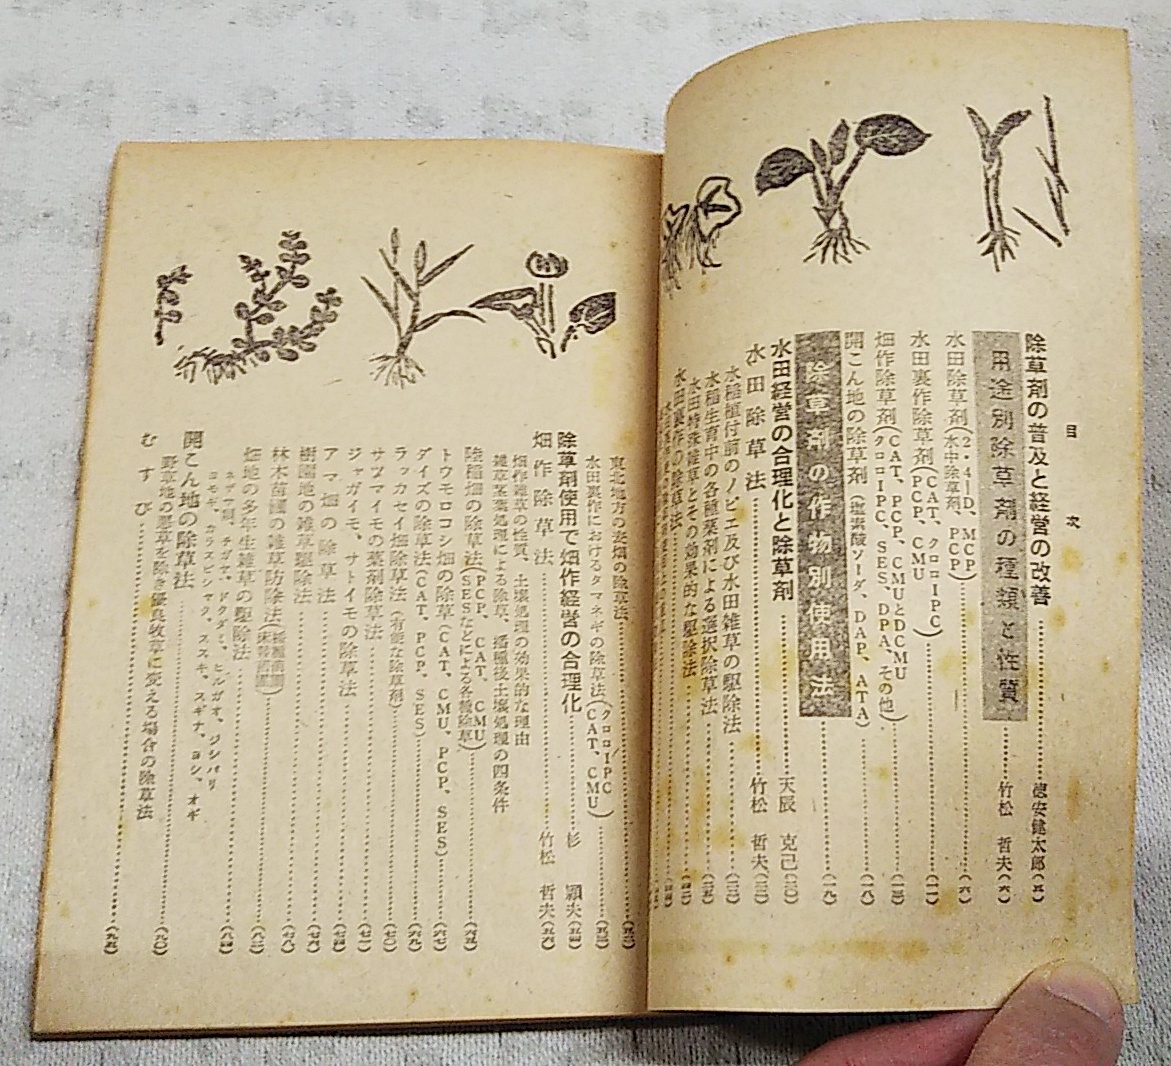 目次
除草剤の普及と経営の改善……徳安健太郎(五)
用途別除草剤の種類と性質……竹松 哲夫(六)
水田除草剤(2・4―D、MCP 水中除草剤、PCP)……(六)
水田裏作除草剤(CAT、クロロIPC PCP、CMU)……(一一)
畑作除草剤(CAT、PCP、CMUとDCMU クロロIPC、SES、DPA、その他)……(一三)
開こん地の除草剤(塩素酸ソーダ、DAP、ATA)……(一八)
除草剤の作物別使用法……(一九)
水田経営の合理化と除草剤……天辰 克己(二〇)
水田除草法……竹松 哲夫(二三)
水稲植付前のノビエ及び水田雑草の駆除法……(二三)
水稲生育中の各種薬剤による選択除草法……(二五)
水田特殊雑草とその効果的な駆除法……(四二)
水田裏作の除草法……
東北地方の麦畑の除草法……(五二)
水田裏作におけるタマネギの除草法(クロロIPC CAT、CMU)……(五三)
除草剤使用で畑作経営の合理化……杉 頴夫(五四)
畑作除草法……竹松 哲夫(五六)
畑作雑草の性質、土壌処理の効果的な理由
雑草茎葉処理による除草、播種後土壌処理の四条件
陸稲畑の除草法(PCP、CAT、CMU SESなどによる各種除草)……(六五)
トウモロコシ畑の除草(CAT、CMU、PCP、SES)……(六七)
ダイズの除草法(CAT、PCP、SES)……(六九)
ラッカセイ畑除草法(有能な除草剤)……(七〇)
サツマイモの薬剤除草法……(七一)
ジャガイモ、サトイモの除草法……(七二)
アマ畑の除草法……(七四)
樹園地の雑草駆除法……(七六)
林木苗圃の雑草防除法(播種苗圃 床替苗圃)……(七八)
畑地の多年生雑草の駆除法……(八二)
ネザサ類、チガヤ、ドクダミ、ヒルガオ、ジシバリ
ヨモギ、カラスビシャク、ススキ、スギナ、ヨシ、オギ
開こん地の除草法……(八四)
野草地の悪草を除き優良牧草に変える場合の除草法……(九〇)
むすび……(九五)